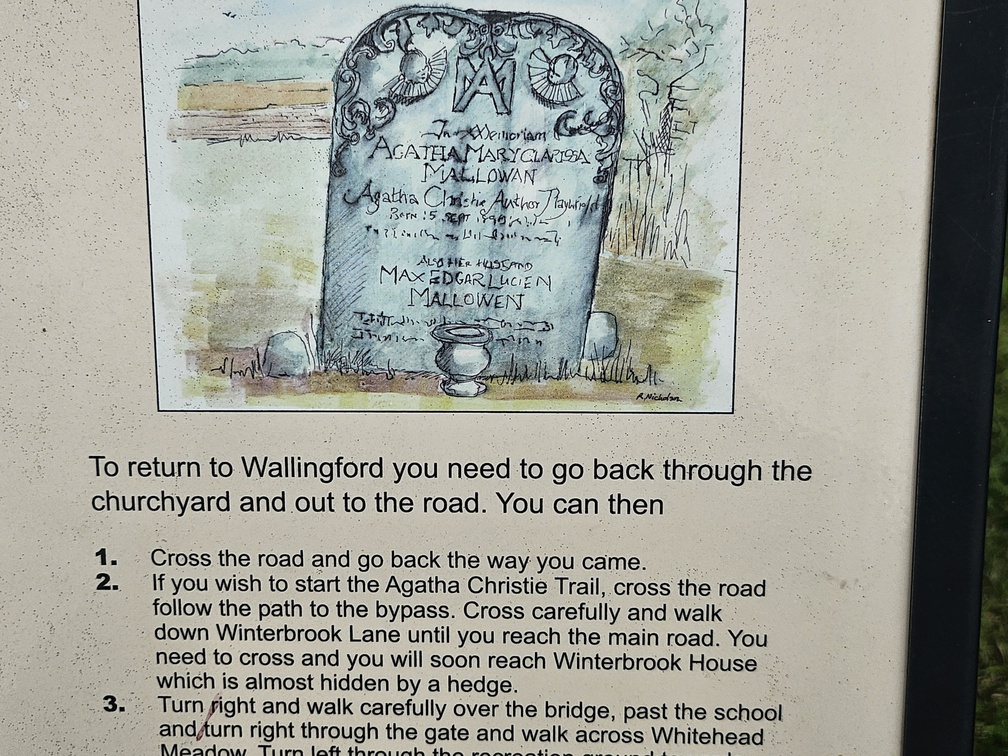 In Memoriam
AGATHA MARY CLARISSA
MALLOWAN
Agatha Christie Author Playwright
BORN 15 SEPT 1890
ALSO HER HUSBAND
MAX EDGAR LUCIEN
MALLOWEN
R. Nicholson
To return to Wallingford you need to go back through the
churchyard and out to the road. You can then
1. Cross the road and go back the way you came.
2. If you wish to start the Agatha Christie Trail, cross the road
follow the path to the bypass. Cross carefully and walk
down Winterbrook Lane until you reach the main road. You
need to cross and you will soon reach Winterbrook House
which is almost hidden by a hedge.
3. Turn right and walk carefully over the bridge, past the school
and turn right through the gate and walk across Whitehead
Meadow. Turn left through the recreation ground